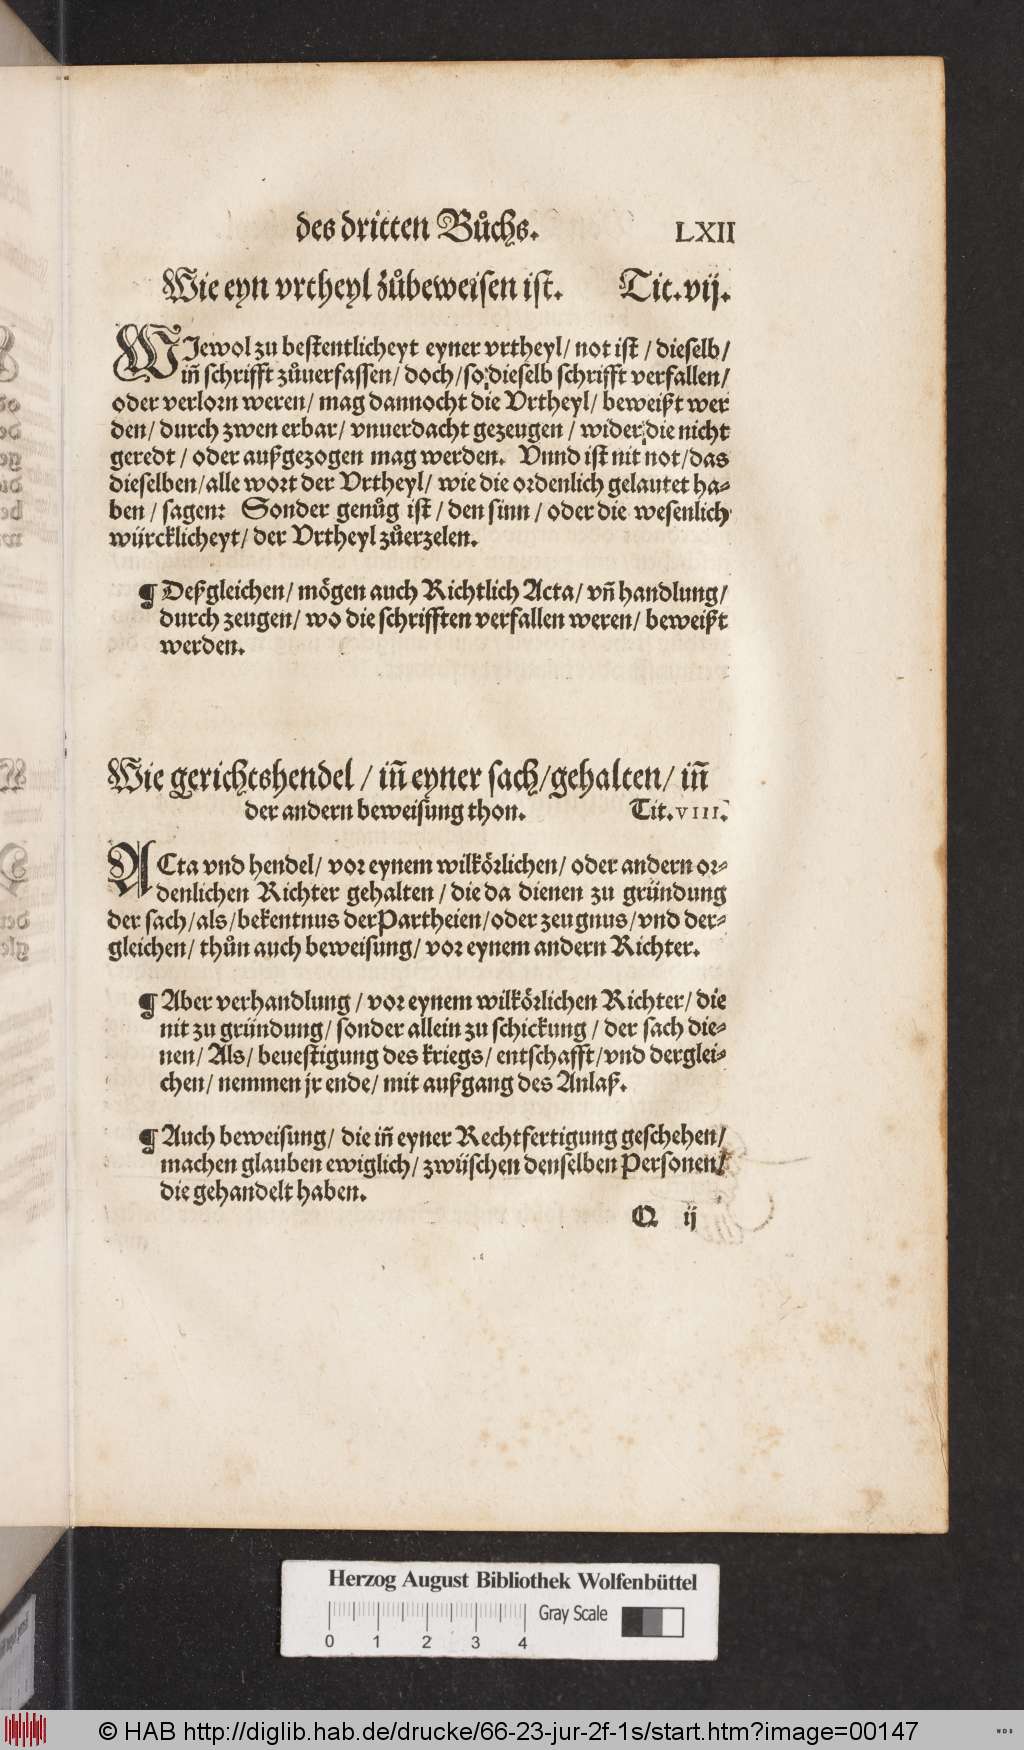 des dritten Bůchs. LXII
Wie eyn vrtheyl zůbeweisen ist. Tit.vij.
WJewol zu bestentlicheyt eyner vrtheyl/ not ist / dieselb/
iñ schrifft zůuerfassen/ doch/ so dieselb schrifft verfallen/
oder verlorn weren/ mag dannocht die Vrtheyl/ beweißt wer
den/ durch zwen erbar/ vnuerdacht gezeugen / wider die nicht
geredt / oder außgezogen mag werden. Vnnd ist nit not/ das
dieselben/ alle wort der Vrtheyl/ wie die ordenlich gelautet ha-
ben / sagen: Sonder genůg ist / den sinn / oder die wesenlich
würcklicheyt/ der Vrtheyl zůerzelen.
¶ Deßgleichen/ mögen auch Richtlich Acta/ vñ handlung/
durch zeugen/ wo die schrifften verfallen weren/ beweißt
werden.
Wie gerichtshendel / iñ eyner sach/ gehalten/ iñ
der andern beweisung thon. Tit.VIII.
ACta vnd hendel/ vor eynem wilkörlichen/ oder andern or-
denlichen Richter gehalten / die da dienen zu gründung
der sach/ als/ bekentnus der Partheien/ oder zeugnus/ vnd der-
gleichen/ thůn auch beweisung/ vor eynem andern Richter.
¶ Aber verhandlung / vor eynem wilkörlichen Richter/ die
nit zu gründung/ sonder allein zu schickung / der sach die-
nen/ Als/ beuestigung des kriegs/ entschafft/ vnd derglei-
chen/ nemmen jr ende/ mit außgang des Anlaß.
¶ Auch beweisung/ die iñ eyner Rechtfertigung geschehen/
machen glauben ewiglich/ zwüschen denselben Personen/
die gehandelt haben.
Q ij
Herzog August Bibliothek Wolfenbüttel
Gray Scale
0 1 2 3 4
© HAB http://diglib.hab.de/drucke/66-23-jur-2f-1s/start.htm?image=00147